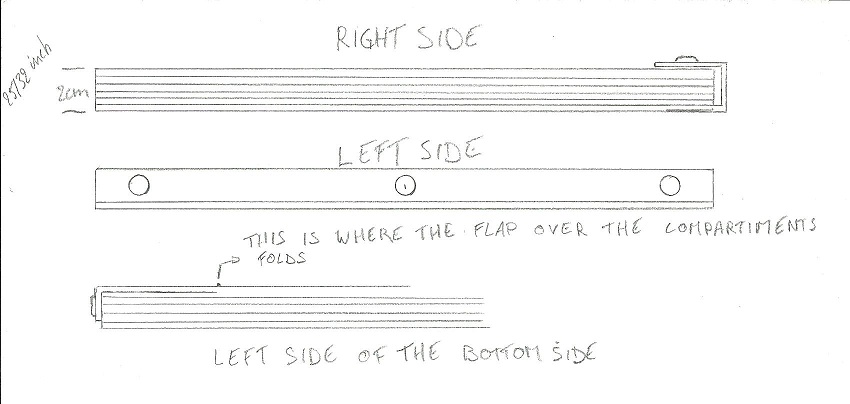 RIGHT SIDE
25/32 inch
2cm
LEFT SIDE
THIS IS WHERE THE FLAP OVER THE COMPARTIMENTS
FOLDS
LEFT SIDE OF THE BOTTOM SIDE